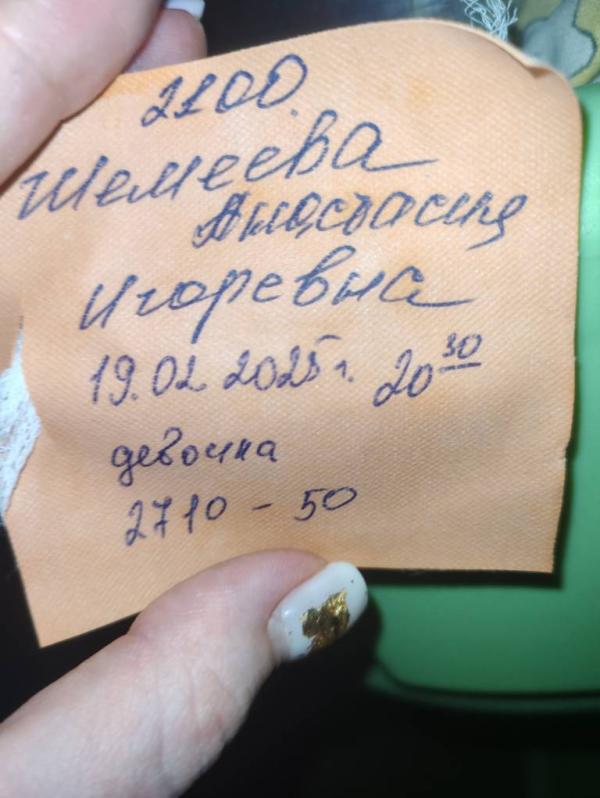 2100
Шемеева
Анастасия
Игоревна
19.02 2025г. 20 30
девочка
2710 - 50